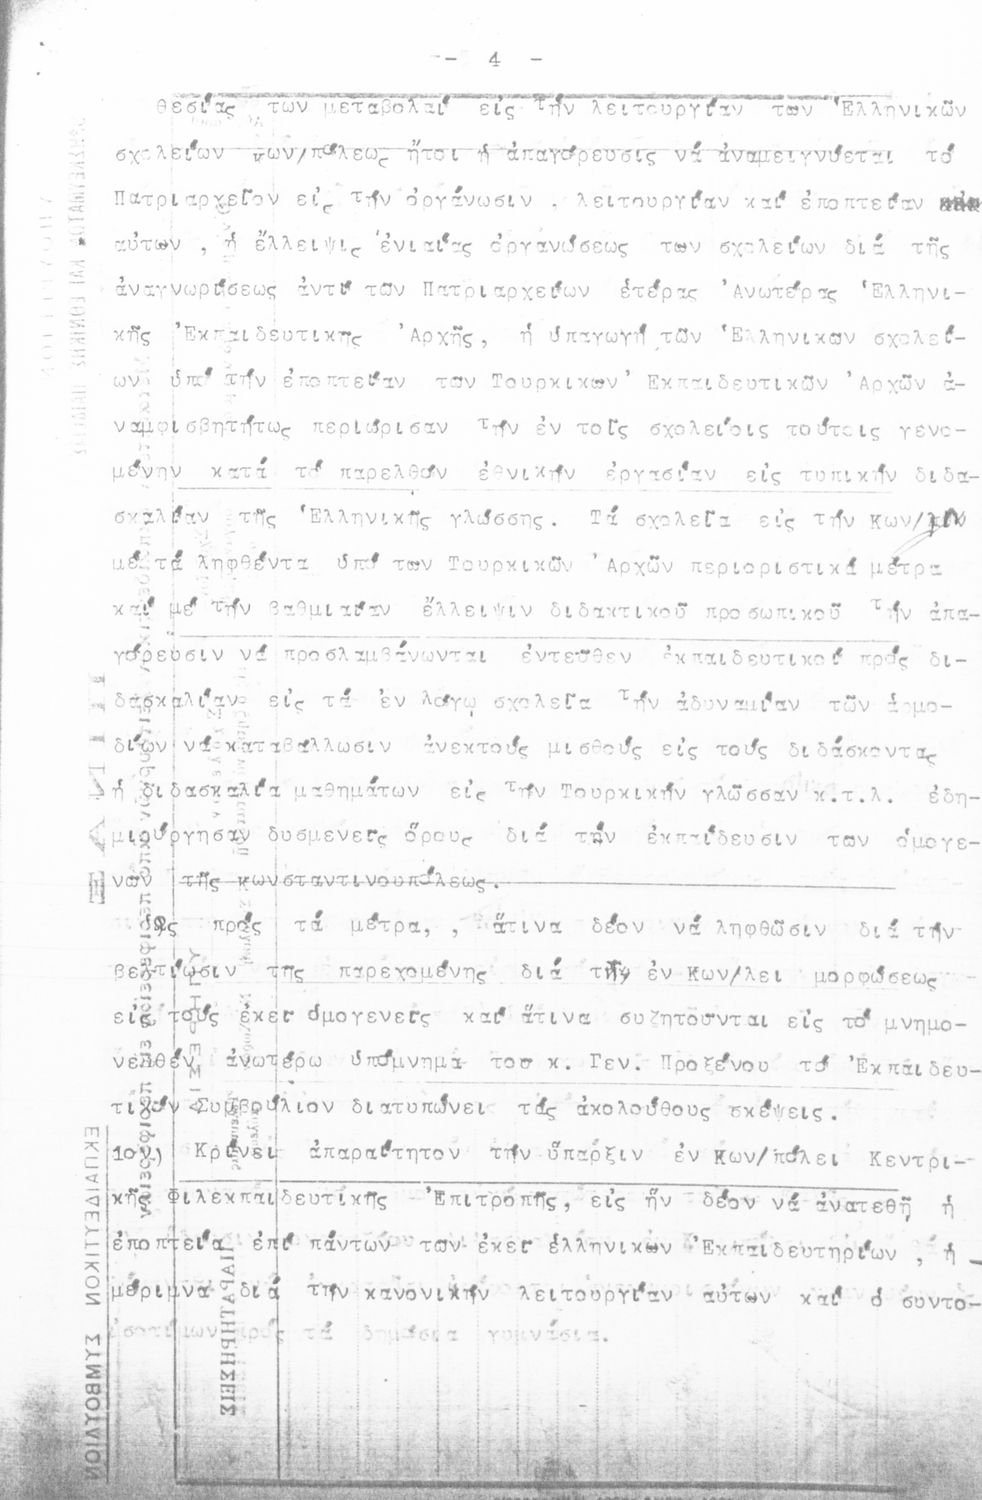 - 4 -
θεσίας των μεταβολαί εἰς τήν λειτουργίαν των Ἑλληνικῶν
σχολείων Κων/πόλεως ἤτοι ἡ ἀπαγόρευσις νά ἀναμειγνύεται τό
Πατριαρχεῖον εἰς τήν ὀργάνωσιν , λειτουργίαν καί ἐποπτείαν
αὐτων , ἡ ἔλλειψις ἑνιαίας ὀργανώσεως των σχολείων διά τῆς
ἀναγνωρίσεως ἀντί τῶν Πατριαρχείων ἑτέρας Ἀνωτέρας Ἑλληνι-
κῆς Ἐκπαιδευτικης Ἀρχῆς, ἡ ὑπαγωγή τῶν Ἑλληνικων σχολεί-
ων ὑπό τήν ἐποπτείαν των Τουρκικων Ἐκπαιδευτικῶν Ἀρχῶν ἀ-
ναμφισβητήτως περιώρισαν τήν ἐν τοῖς σχολείοις τούτοις γενο-
μένην κατά τό παρελθόν ἐθνικήν ἐργασίαν εἰς τυπικήν διδα-
σκαλίαν τῆς Ἑλληνικῆς γλώσσης. Τά σχολεῖα εἰς τήν Κων/λιν
μέ τά ληφθέντα ὑπό των Τουρκικῶν Ἀρχῶν περιοριστικά μέτρα
καί μέ τήν βαθμιαίαν ἔλλειψιν διδακτικοῦ προσωπικοῦ τήν ἀπα-
γόρευσιν νά προσλαμβάνωνται ἐντεῦθεν ἐκπαιδευτικοί πρός δι-
δασκαλίαν εἰς τά ἐν λόγῳ σχολεῖα τήν ἀδυναμίαν τῶν ἁρμο-
δίων νά καταβάλλωσιν ἀνεκτούς μισθούς εἰς τούς διδάσκοντας
ἡ διδασκαλία μαθημάτων εἰς τήν Τουρκικήν γλῶσσαν κ.τ.λ. ἐδη-
μιούργησαν δυσμενεῖς ὅρους διά τήν ἐκπαίδευσιν των ὁμογε-
νῶν τῆς Κωνσταντινουπόλεως.
Ὡς πρός τά μέτρα, , ἅτινα δέον νά ληφθῶσιν διά τήν
βελτίωσιν της παρεχομένης διά τήν ἐν Κων/λει μορφώσεως
εἰς τούς ἐκεῖ ὁμογενεῖς καί ἅτινα συζητοῦνται εἰς τό μνημο-
νευθέν ἀνωτέρω ὑπόμνημα του κ. Γεν. Προξένου τό Ἐκπαιδευ-
τικόν Συμβούλιον διατυπώνει τάς ἀκολούθους σκέψεις.
1ον) Κρίνει ἀπαραίτητον την ὕπαρξιν ἐν Κων/πόλει Κεντρι-
κῆς Φιλεκπαιδευτικῆς Ἐπιτροπῆς, εἰς ἥν δέον νά ἀνατεθῇ ἡ
ἐποπτεία ἐπί πάντων των ἐκεῖ ἑλληνικων Ἐκπαιδευτηρίων , ἡ
μέριμνα διά τήν κανονικήν λειτουργίαν αὐτων καί ὁ συντο-
πρός τά δημόσια γυμνάσια.
ΕΚΠΑΙΔΕΥΤΙΚΟΝ ΣΥΜΒΟΥΛΙΟΝ
ΠΑΡΑΤΗΡΗΣΕΙΣ